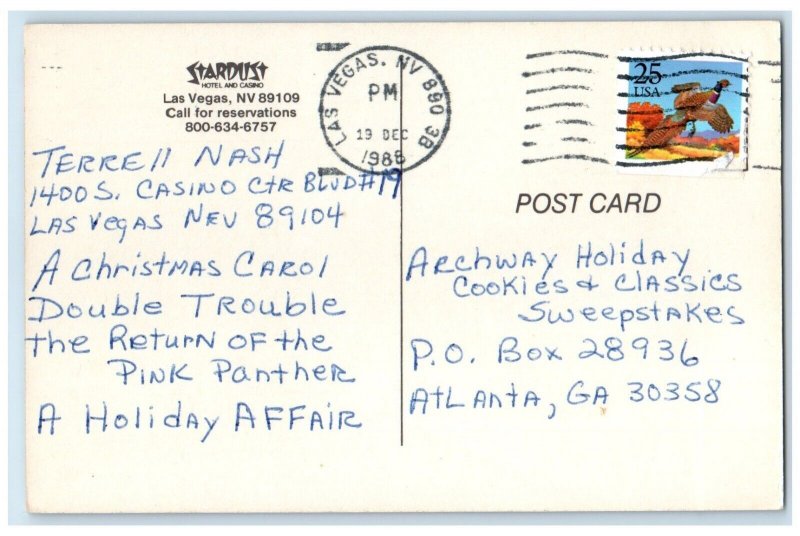 STARDUST
HOTEL AND CASINO
Las Vegas, NV 89109
Call for reservations
800-634-6757
LAS VEGAS, NV 890 3B
PM
19 DEC
1988
25
USA
TERRELL NASH
1400 S. CASINO CTR BLVD #19
LAS VEGAS NEV 89104
A CHRISTMAS CAROL
DOUBLE TROUBLE
the RETURN OF the
PINK PANTHER
A HOLIDAY AFFAIR
POST CARD
ARCHWAY HOLIDAY
COOKIES & CLASSICS
SWEEPSTAKES
P.O. BOX 28936
ATLANTA, GA 30358